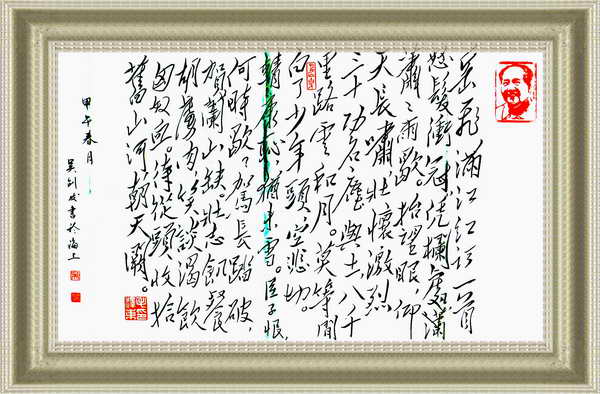 岳飛滿江紅一首
怒髮衝冠憑欄處瀟
瀟々雨歇。抬望眼,仰
天長嘯,壯懷激烈
三十功名塵與土八千
里路雲和月。莫等閒
白了少年頭,空悲切。
靖康恥猶未雪。臣子恨,
何時歇?駕長踏破,
賀蘭山缺。壯志飢餐
胡虜肉笑談渴飲
匈奴血。待從頭,收拾
舊山河,朝天闕。
甲午春月
書於海上